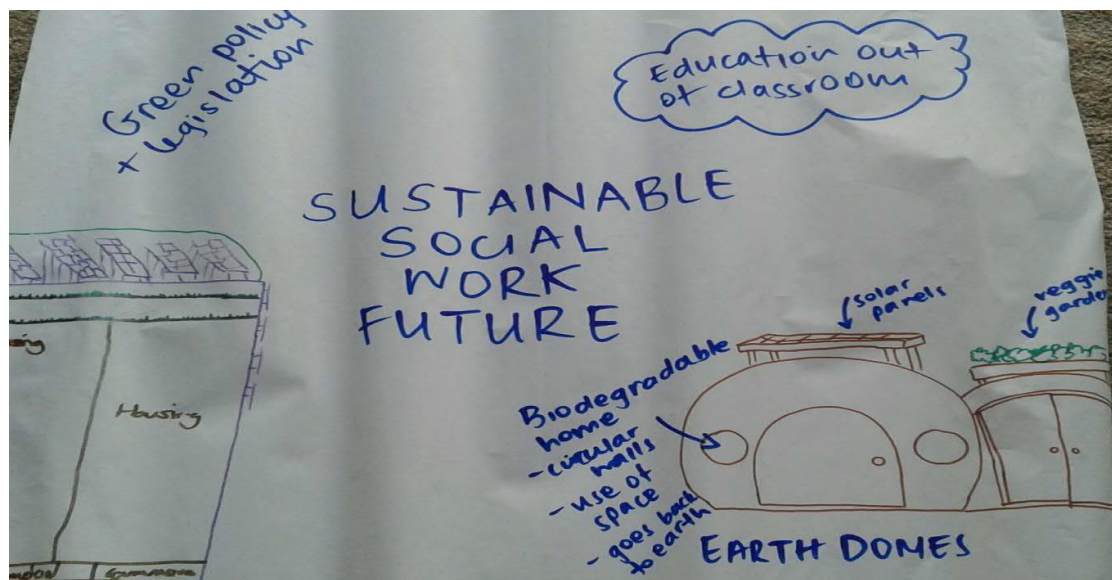 Green policy
+ legislation
Education out
of classroom
SUSTAINABLE
SOCIAL
WORK
FUTURE
Housing
solar
panels
veggie
garden
Biodegradable
home
- circular
walls
- use of
space
- goes back
to earth
EARTH DOMES